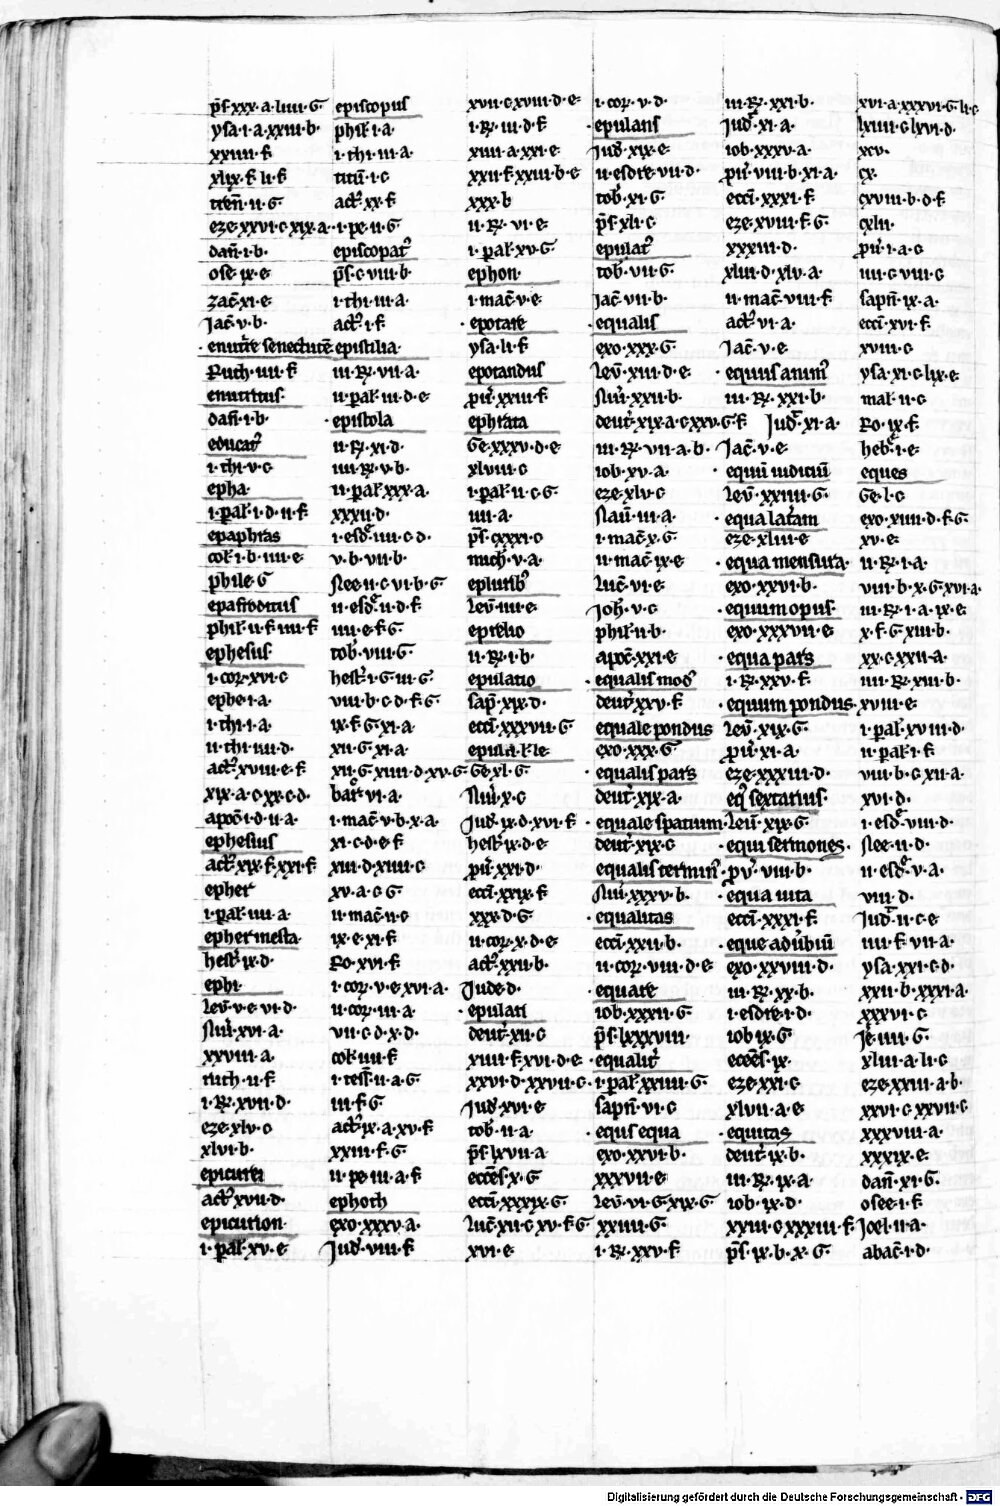 ps̄·xxx·a·liiii·G
ysa·i·a·xxiii·b·
xxiiii·f
xlix·f·li·f
tren̄·ii·G
eze·xxvi·c·xix·a·
dan̄·i·b·
ose·ix·e
zac̄·xi·e
Jac̄·v·b·
enutrire senectutē
Ruth·iiii·f
enutritus·
dan̄·i·b·
educat᷒
i·thi·v·c
epha·
i·pal̄·i·d·ii·f
epaphras
col̄·i·b·iiii·e
phile·G
epafroditus
phil̄·ii·f·iiii·f
ephesus
i·cor·xvi·c
ephe·i·a·
i·thi·i·a·
ii·thi·iiii·d·
act᷒·xviii·e·f
xix·a·c·xx·c·d·
apoc̄·i·d·ii·a·
ephesius
act᷒·xix·f·xxi·f
epher
i·pal̄·iiii·a·
epher mesta·
hest᷒·ix·d·
ephi·
Lev̄·v·e·vi·d·
Nu᷒·xvi·a·
xxviii·a·
ruth·ii·f·
i·R·xvii·d·
eze·xlv·c
xlvi·b·
epicurei
act᷒·xvii·d·
epicurion·
i·pal̄·xv·e
episcopus
phil̄·i·a·
i·thi·iii·a·
titū·i·c
act᷒·xx·f
i·pe·ii·G
episcopat᷒
ps̄·c·viii·b
i·thi·iii·a·
act᷒·i·f
epistilia·
iii·R·vii·a·
ii·pal̄·iii·d·e
epistola
ii·R·xi·d·
iiii·R·v·b·
ii·pal̄·xxx·a·
xxxii·d·
i·esd᷒·iiii·c·d·
v·b·vii·b·
Nee·ii·c·vi·b·G
ii·esd᷒·ii·d·f
iiii·e·f·G·
tob᷒·viii·G·
hest᷒·i·G·iii·G
viii·b·c·d·f·G
ix·f·G·xi·a·
xii·G·xi·a·
xii·G·xiiii·d·xv·G·
bar᷒·vi·a·
i·mac̄·v·b·x·a·
xi·c·d·e·f
xiii·d·xiiii·c
xv·a·c·G·
ii·mac̄·ii·c
ix·e·xi·f
Ro·xvi·f
i·cor·v·e·xvi·a·
ii·cor·iii·a·
vii·c·d·x·d·
col̄·iiii·f
i·tess̄·ii·a·G·
iii·f·G
act᷒·ix·a·xv·f
xxiii·f·G
ii·pe·iii·a·f
ephoth
exo·xxxv·a·
Jud᷒·viii·f
xvii·c·xviii·d·e
i·R·iii·d·f
xiiii·a·xxi·e
xxii·f·xxiii·b·e
xxx·b
ii·R·vi·e
i·pal̄·xv·G
ephon·
i·mac̄·v·e
epotare
ysa·li·f
epotandus
pu᷒·xxiii·f
ephrata
Ge·xxxv·d·e
xlviii·c
i·pal̄·ii·c·G
iiii·a·
ps̄·cxxxi·c
mich᷒·v·a·
epulurib᷒
Lev̄·iiii·e
eprelio
ii·R·i·b·
epulatio
sap̄·xix·d·
ecc̄i·xxxvii·G
Ge·xl·G·
Nu᷒·x·c
Jud᷒·ix·d·xvi·f
hest᷒·ix·d·e
pu᷒·xxi·d·
ecc̄i·xxix·f
xxx·d·G
ii·cor·x·d·e
act᷒·xxii·b·
Jude·d·
epulari
deut᷒·xii·c
xiiii·f·xvi·d·e
xxvi·d·xxvii·c
Jud᷒·xvi·e
tob·ii·a·
ps̄·lxvii·a
ecc̄es·x·G
ecc̄i·xxxix·G
Luc̄·xii·c·xv·f·G
xvi·e
i·cor·v·d·
epulans
Jud᷒·xix·e
ii·esdre·vii·d·
tob᷒·xi·G
ps̄·xli·c
epulat᷒
tob᷒·vii·G·
Jac̄·vii·b·
equalis
exo·xxx·G
Lev̄·xiii·d·e
Nu᷒·xxii·b·
deut᷒·xix·a·c·xxv·G·f
iii·R·vii·a·b·
iob·xv·a·
eze·xlv·c
Nau᷒·iii·a·
i·mac̄·x·G·
ii·mac̄·ix·e
Luc̄·vi·e
Joh᷒·v·c
phil̄·ii·b·
apoc̄·xxi·e
equalis mos᷒
deut᷒·xxv·f
equale pondus
exo·xxx·G
equalis pars
deut᷒·xix·a·
equale spatium·
deut᷒·xix·c
equalis termin᷒
Nu᷒·xxxv·b·
equalitas
ecc̄i·xxii·b·
ii·cor·viii·d·e
equare
iob·xxxii·G
ps̄·lxxxviii·
equalit᷒
i·pal̄·xxiiii·G
sapn̄·vi·c
equs equa
exo·xxvi·b·
xxxvii·e
Lev̄·vi·G·xix·G
xxiiii·G
i·R·xxv·f
iii·R·xxi·b·
Jud᷒·xi·a·
iob·xxxv·a·
pu᷒·viii·b·xi·a·
ecc̄i·xxxi·f
eze·xviii·f·G
xxxiii·d·
xliii·d·xlv·a·
ii·mac̄·viii·f
act᷒·vi·a·
Jac̄·v·e
equus anim᷒
iii·R·xxi·b·
Jud᷒·xi·a·
Jac̄·v·e
equū iudiciū
Lev̄·xxiiii·G·
equa latam
eze·xliii·e
equa mensura·
exo·xxvi·b·
equum opus·
exo·xxxvii·e
equa pars
i·R·xxv·f·
equum pondus·
Lev̄·xix·G
pu᷒·xi·a·
eze·xxxiii·d·
eq᷒ sextarius·
Leu᷒·xix·G
equi sermones·
pu᷒·viii·b·
equa uita
ecc̄i·xxxi·f·
eque adubiū
exo·xxviii·d·
iii·R·xx·b·
i·esdre·i·d·
iob·ix·G
ecc̄es·ix·
eze·xxi·c
xlvii·a·e
equitas
deut᷒·ix·b·
iii·R·ix·a·
iob·ix·d·
xxiii·c·xxxiii·f
ps̄·ix·b·x·G
xvi·a·xxxvi·G·li·c
lxiiii·c·lxvi·d·
xcv·
cx·
cxviii·b·d·f
cxlii·
pu᷒·i·a·c
iiii·c·viii·c
sapn̄·ix·a·
ecc̄i·xvi·f
xviii·c
ysa·xi·c·lix·e·
mal·ii·c
Ro·ix·f·
heb᷒·i·e
eques
Ge·l·c
exo·xiiii·d·f·G·
xv·e·
ii·R·i·a·
viii·b·x·G·xvi·a·
iii·R·i·a·ix·e·
x·f·G·xiii·b·
xx·c·xxii·a·
iiii·R·xiii·b·
xviii·e
i·pal̄·xviii·d·
ii·pal̄·i·f
viii·b·c·xii·a·
xvi·d·
i·esd᷒·viii·d·
Nee·ii·d·
ii·esd᷒·v·a·
viii·d·
Jud᷒·ii·c·e
iiii·f·vii·a·
ysa·xxi·c·d·
xxii·b·xxxi·a·
xxxvi·c
Je·iiii·G·
xliii·a·li·c
eze·xxiii·a·b·
xxvi·c·xxvii·c
xxxviii·a·
xxxix·e·
dan̄·xi·G·
osee·i·f
Joel·ii·a·
abac̄·i·d·
Digitalisierung gefördert durch die Deutsche Forschungsgemeinschaft - DFG